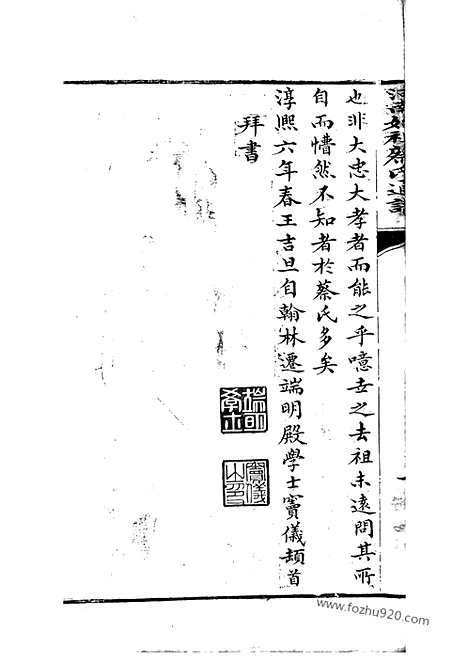 也非大忠大孝者而能之乎噫去之去祖未遠問其所
自而懵然不知者於蔡氏多矣
淳熙六年春王吉旦自翰林遷端明殿學士竇儀頓首
拜書
端明
學士
竇儀
之印
蔡氏
www.fozhu920.com